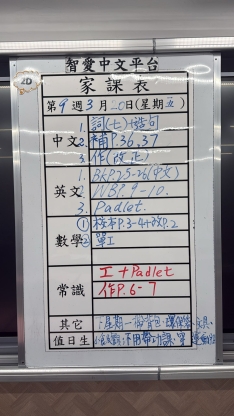 2D
智愛中文平台
家課表
第9週3月20日(星期五)
中文 1. 詞(七)造句
2. 補P.36,37
3. 作(改正)
英文 1. BKP.25-26(中文)
2. WB P.9-10.
3. Padlet.
數學 ① 校本P.3-4+改P.2
② 單工
常識 工+Padlet
作P.6-7
其它 星期一
值日生 不用帶